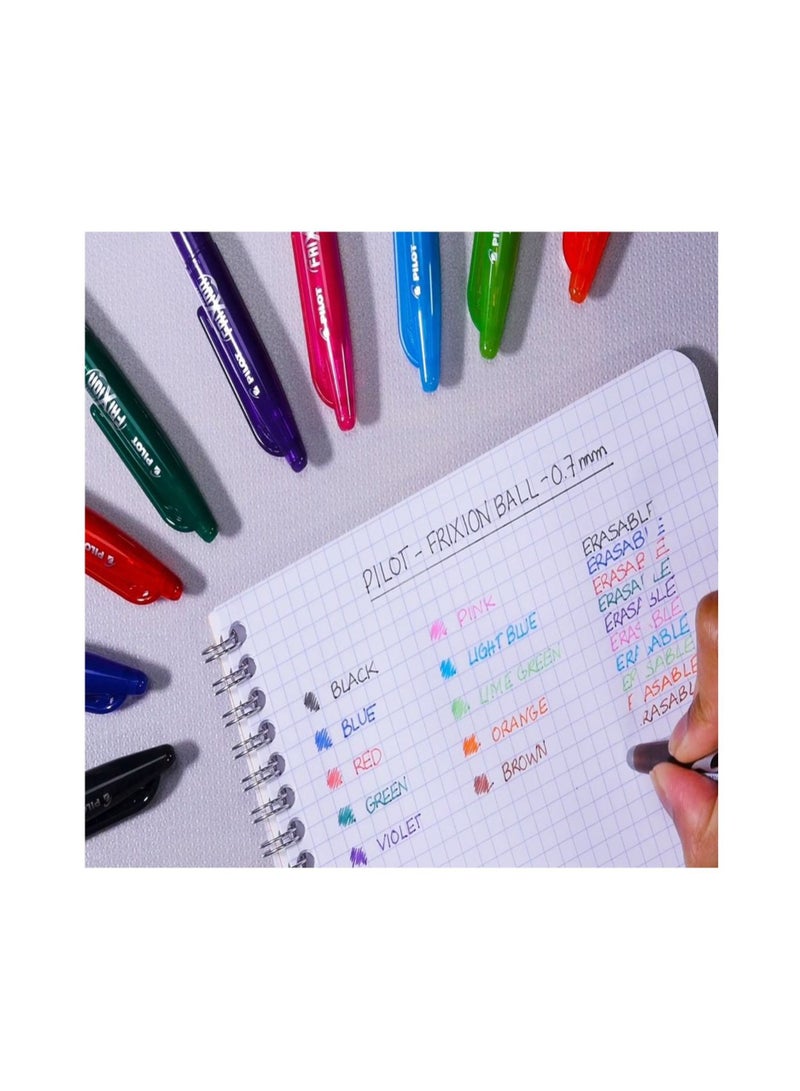 FRIXION
PILOT
FRIXION
PILOT
FRIX
PILOT
PILOT
PI
PILOT
PIL
PILOT - FRIXION BALL - 0.7mm
BLACK
BLUE
RED
GREEN
VIOLET
PINK
LIGHT BLUE
LIME GREEN
ORANGE
BROWN
ERASABLE
ERASABLE
ERASABLE
ERASABLE
ERASABLE
ERASABLE
ERASABLE
ERASABLE
ERASABLE
ERASABL